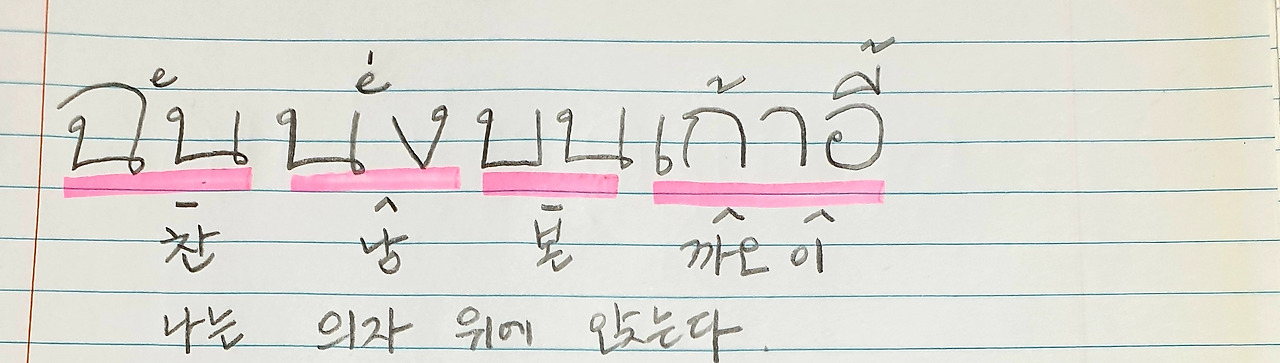 ฉันนั่งบนเก้าอี้
찬 낭 본 까오 이
나는 의자 위에 앉는다.